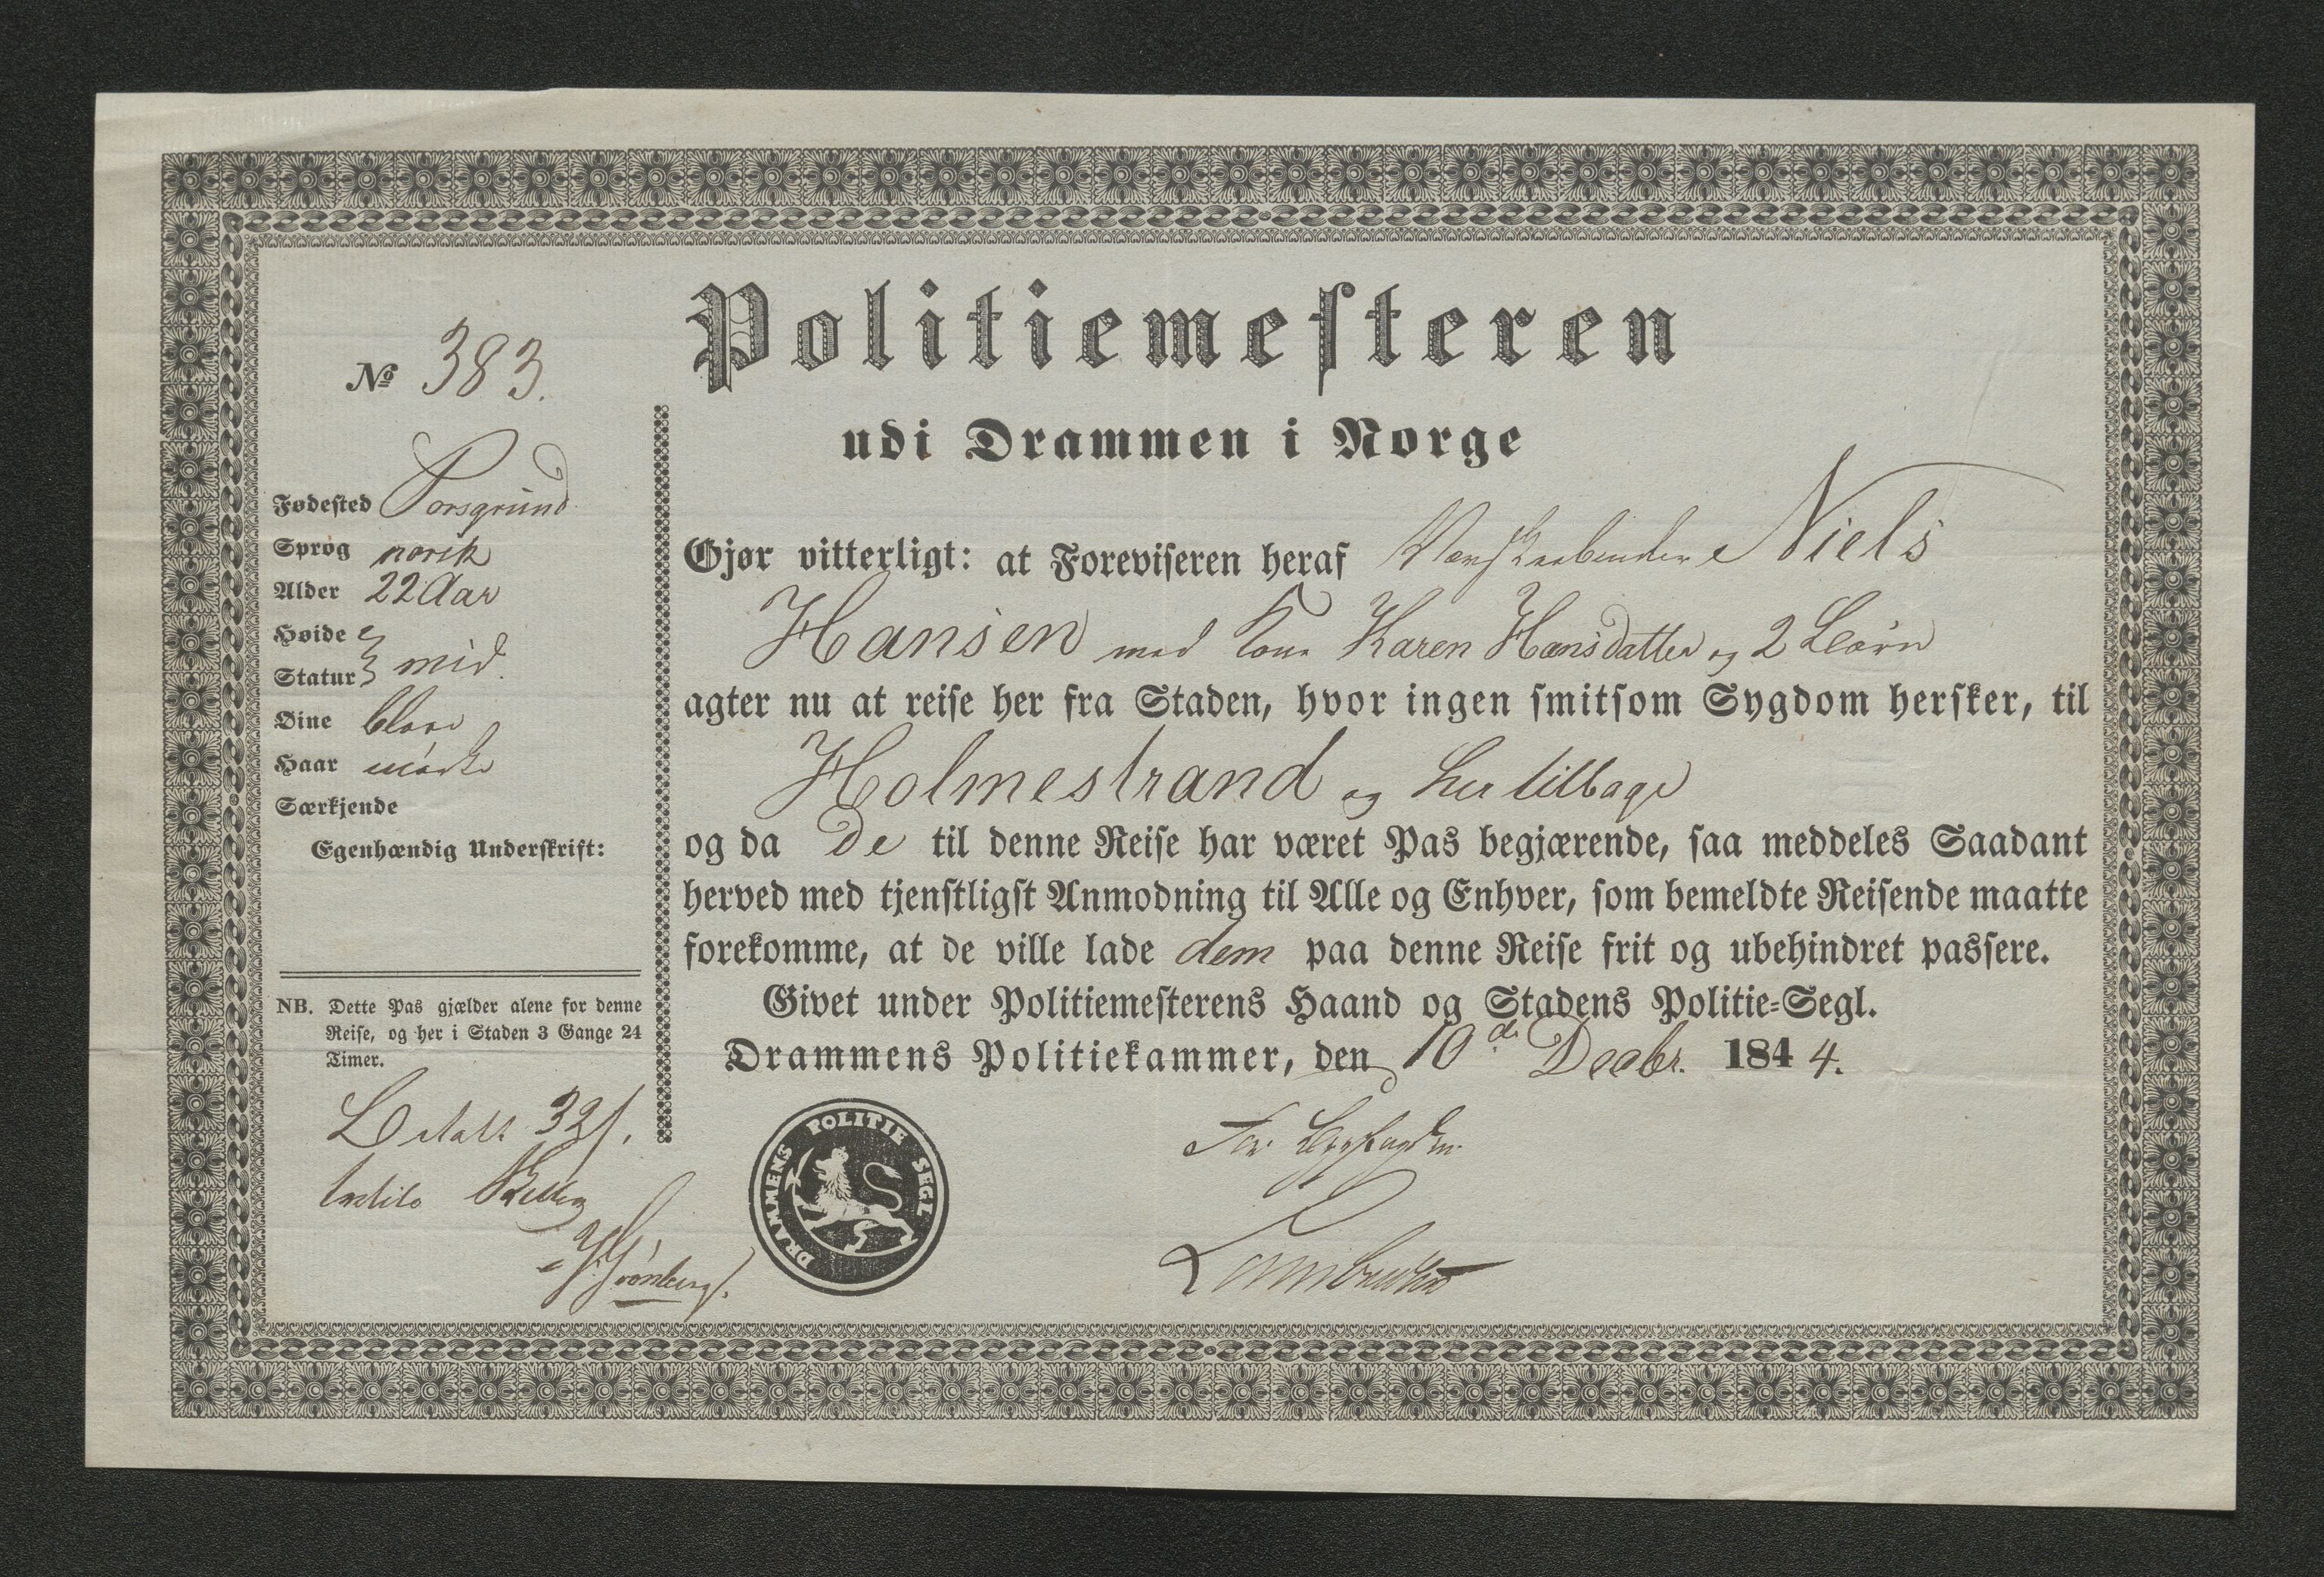 Politiemesteren
udi Drammen i Norge
№ 383.
Fødested Porsgrund
Sprog norsk
Alder 22 Aar
Høide
Statur mid.
Øine blaae
Haar mørke
Særkjende
Egenhændig Underskrift:
NB. Dette Pas gjælder alene for denne
Reise, og her i Staden 3 Gange 24
Timer.
Betalt 32 s.
Gjør vitterligt: at Foreviseren heraf Niels
Hansen med Kone Karen Hansdatter og 2 Børn
agter nu at reise her fra Staden, hvor ingen smitsom Sygdom hersker, til
Holmestrand og her tilbage
og da De til denne Reise har været Pas begjærende, saa meddeles Saadant
herved med tjenstligst Anmodning til Alle og Enhver, som bemeldte Reisende maatte
forekomme, at de ville lade dem paa denne Reise frit og ubehindret passere.
Givet under Politiemesterens Haand og Stadens Politie-Segl.
Drammens Politiekammer, den 10de Decbr. 1844.
DRAMMENS POLITIE SEGL
For Byefogden